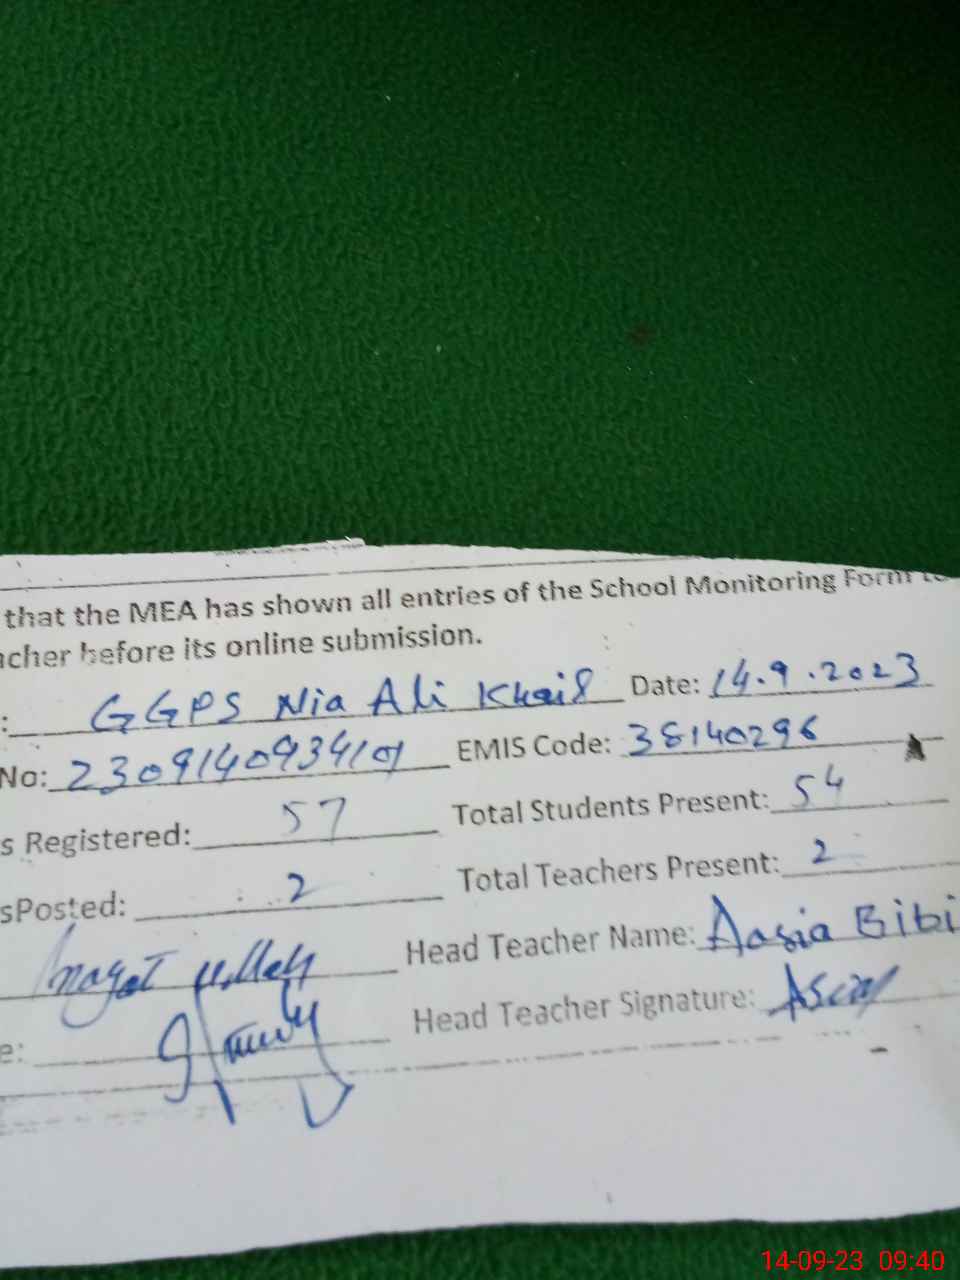 that the MEA has shown all entries of the School Monitoring Form to
acher before its online submission.
: GGPS Nia Ali Khail Date: 14.9.2023
No: 2309140934101 EMIS Code: 38140296
s Registered: 57 Total Students Present: 54
sPosted: 2 Total Teachers Present: 2
Inayat ullah Head Teacher Name: Aasia Bibi
e: Head Teacher Signature:
14-09-23 09:40